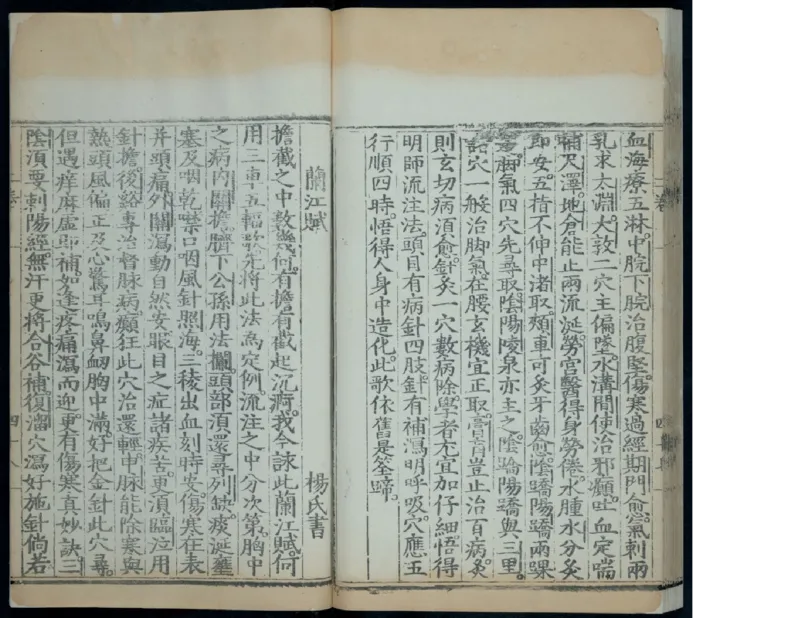 血海療五淋中脘下脘治腹堅傷寒過經期門愈氣刺兩
乳求太淵大敦二穴主偏墜水溝間使治邪癲吐血定喘
補尺澤地倉能止兩流涎勞宮醫得身勞倦水腫水分灸
即安五指不伸中渚取頰車可灸牙齒愈陰蹻陽蹻兩踝
邊脚氣四穴先尋取陰陽陵泉亦主之陰蹻陽蹻與三里
諸穴一般治脚氣在腰玄機宜正取膏肓豈止治百病灸
則玄切病須愈針灸一穴數病除學者尤宜加仔細悟得
明師流注法頭目有病針四肢針有補瀉明呼吸穴應五
行順四時悟得人身中造化此歌依舊是筌蹄
蘭江賦 楊氏書
擔截之中數幾何有擔有截起沉疴我今詠此蘭江賦何
用三車五輻歌先將此法為定例流注之中分次第胸中
之病內關擔臍下公孫用法攔頭部須還尋列缺痰涎壅
塞及咽乾噤口咽風針照海三稜出血刻時安傷寒在表
并頭痛外關瀉動自然安眼目之症諸疾苦更須臨泣用
針擔後谿專治督脉病癲狂此穴治還輕申脉能除寒與
熱頭風偏正及心驚耳鳴鼻衂胸中滿好把金針此穴尋
但遇痒麻虛即補如逢疼痛瀉而迎更有傷寒真妙訣三
陰須要刺陽經無汗更將合谷補復溜穴瀉好施針倘若